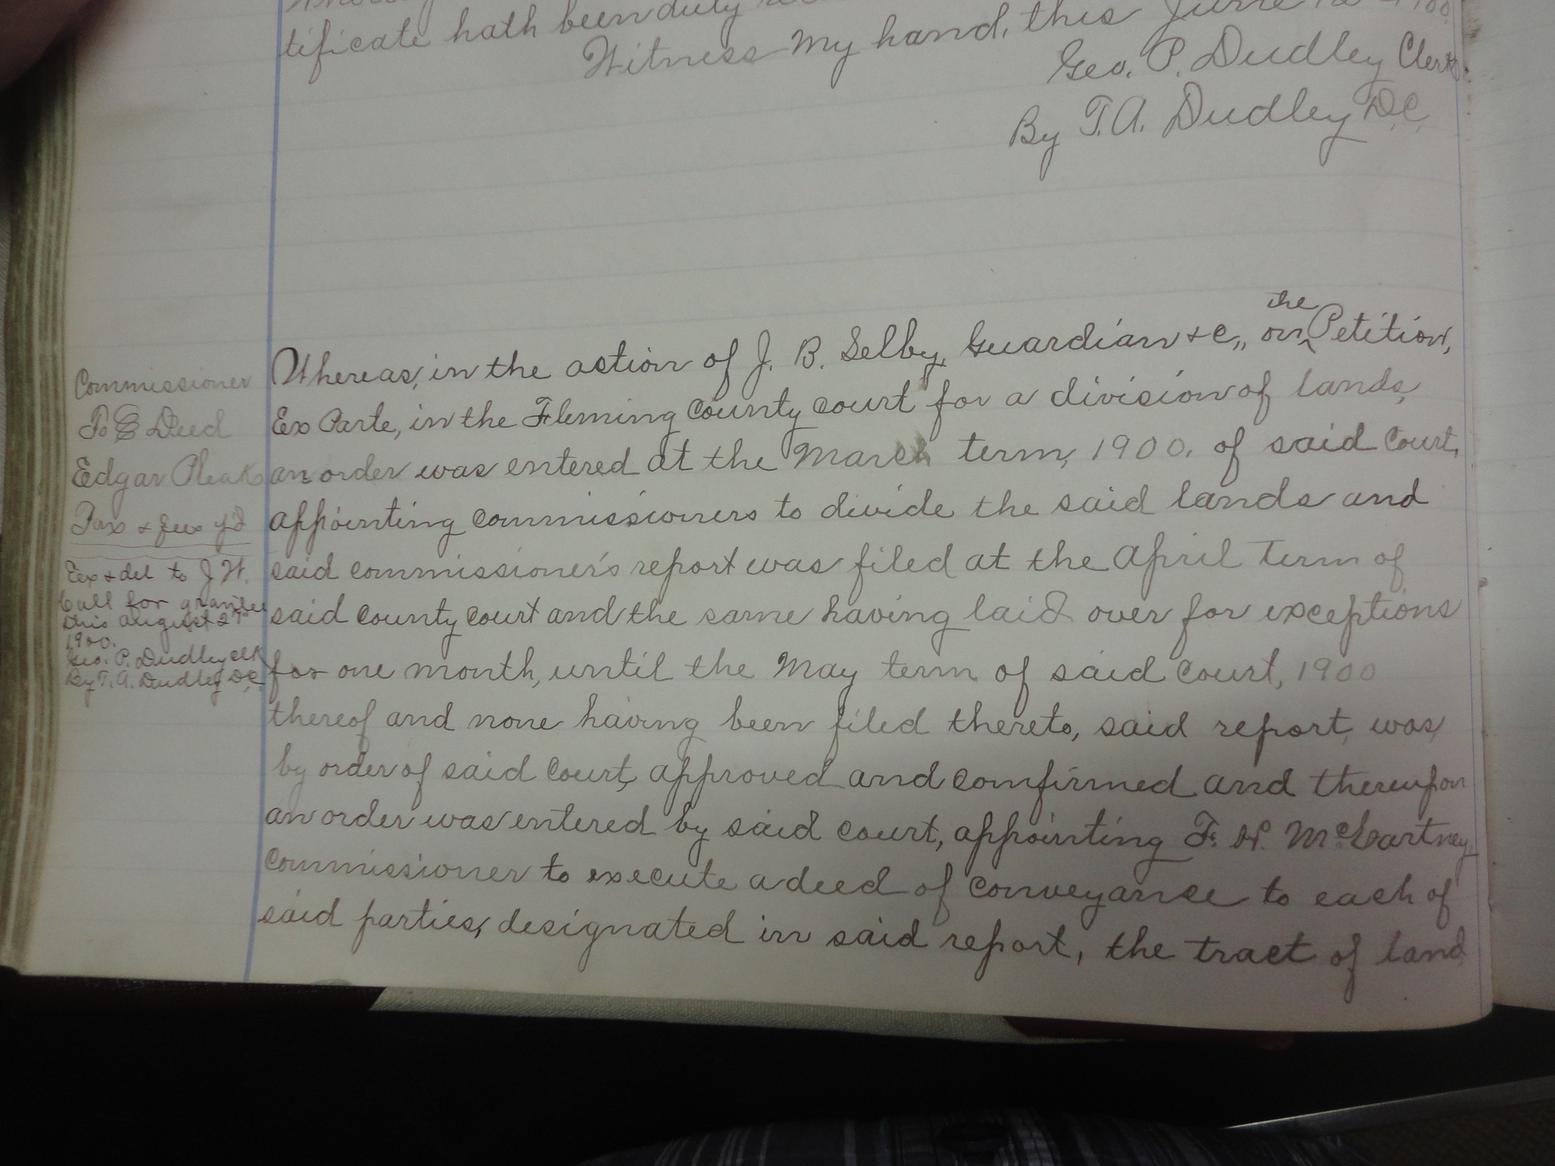 tificate hath been duly
Witness My hand, this June
Geo. P. Dudley Clerk
By T. A. Dudley D.C.
Commissioner
To Deed
Edgar Pleak
Tax & fees p'd
Ex & del to J. W.
Call for grantee
this august 27
1900.
Geo. P. Dudley clk
By T. A. Dudley D.C.
Whereas, in the action of J. B. Selby, Guardian &c,, on the Petition,
Ex Parte, in the Fleming County court for a division of lands,
an order was entered at the March term, 1900. of said Court,
appointing commissioners to divide the said lands and
said commissioner's report was filed at the April Term of
said county court and the same having laid over for exceptions
for one month, until the May term of said Court, 1900
thereof and none having been filed thereto, said report, was
by order of said Court, approved and comfirmed and thereupon
an order was entered by said court, appointing F. H. McCartney
commissioner to execute a deed of conveyance to each of
said parties, designated in said report, the tract of land